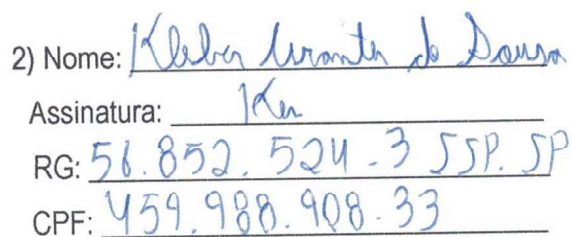 2) Nome: Kleber de Sousa
Assinatura:
RG: 56.852.524-3 SSP. SP
CPF: 459.988.908-33